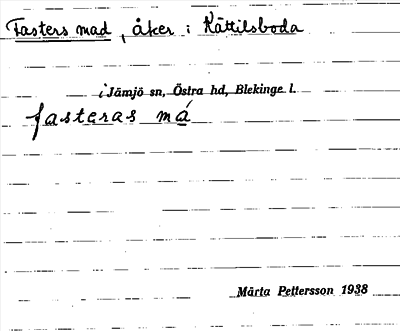 Fasters mad, åker i Kättilsboda
i Jämjö sn, Östra hd, Blekinge l.
fasteras má
Märta Pettersson 1938